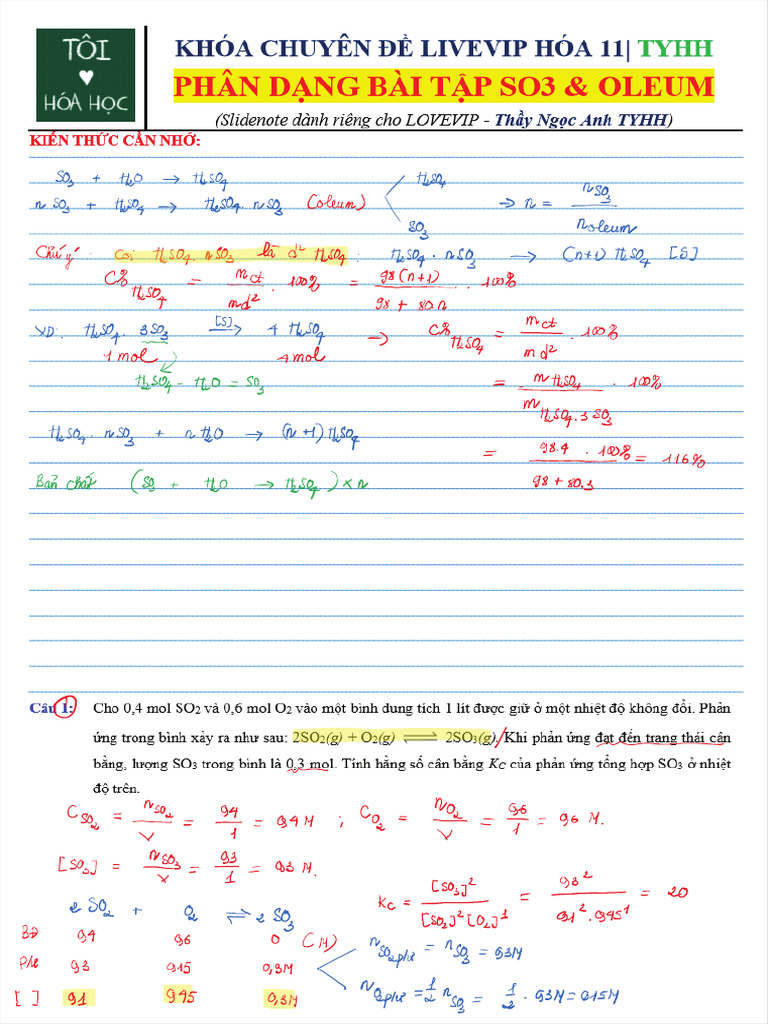 TÔI
♥
HÓA HỌC
KHÓA CHUYÊN ĐỀ LIVEVIP HÓA 11| TYHH
PHÂN DẠNG BÀI TẬP SO3 & OLEUM
(Slidenote dành riêng cho LOVEVIP - Thầy Ngọc Anh TYHH)
KIẾN THỨC CẦN NHỚ:
SO₃ + H₂O → H₂SO₄
n SO₃ + H₂SO₄ → H₂SO₄. nSO₃ (oleum) < H₂SO₄ SO₃ → n = nSO₃ / n oleum
Chú ý: Coi H₂SO₄. nSO₃ là d² H₂SO₄: H₂SO₄ . nSO₃ → (n+1) H₂SO₄ [S]
C% H₂SO₄ = mct / md² . 100% = 98(n+1) / 98 + 80.n . 100%
VD: H₂SO₄. 3SO₃ [S] → 4 H₂SO₄ → C% H₂SO₄ = mct / md² . 100%
1 mol 4 mol
H₂SO₄ - H₂O = SO₃ = m H₂SO₄ / m H₂SO₄.3SO₃ . 100%
H₂SO₄ . nSO₃ + n H₂O → (n+1) H₂SO₄
= 98.4 / 98 + 80.3 . 100% = 116%
Bản chất (SO₃ + H₂O → H₂SO₄) × n
Câu 1: Cho 0,4 mol SO₂ và 0,6 mol O₂ vào một bình dung tích 1 lít được giữ ở một nhiệt độ không đổi. Phản
ứng trong bình xảy ra như sau: 2SO₂(g) + O₂(g) ⇌ 2SO₃(g). Khi phản ứng đạt đến trạng thái cân
bằng, lượng SO₃ trong bình là 0,3 mol. Tính hằng số cân bằng KC của phản ứng tổng hợp SO₃ ở nhiệt
độ trên.
C SO₂ = nSO₂ / V = 0,4 / 1 = 0,4 M ; C O₂ = nO₂ / V = 0,6 / 1 = 0,6 M.
[SO₃] = nSO₃ / V = 0,3 / 1 = 0,3 M.
KC = [SO₃]² / [SO₂]² [O₂]¹ = 0,3² / 0,1² . 0,45¹ = 20
2 SO₂ + O₂ ⇌ 2 SO₃
BĐ 0,4 0,6 0 (M)
Pứ 0,3 0,15 0,3M
[ ] 0,1 0,45 0,3M
nSO₂ pứ = nSO₃ = 0,3M
nO₂ pứ = 1/2 nSO₃ = 1/2 . 0,3M = 0,15M